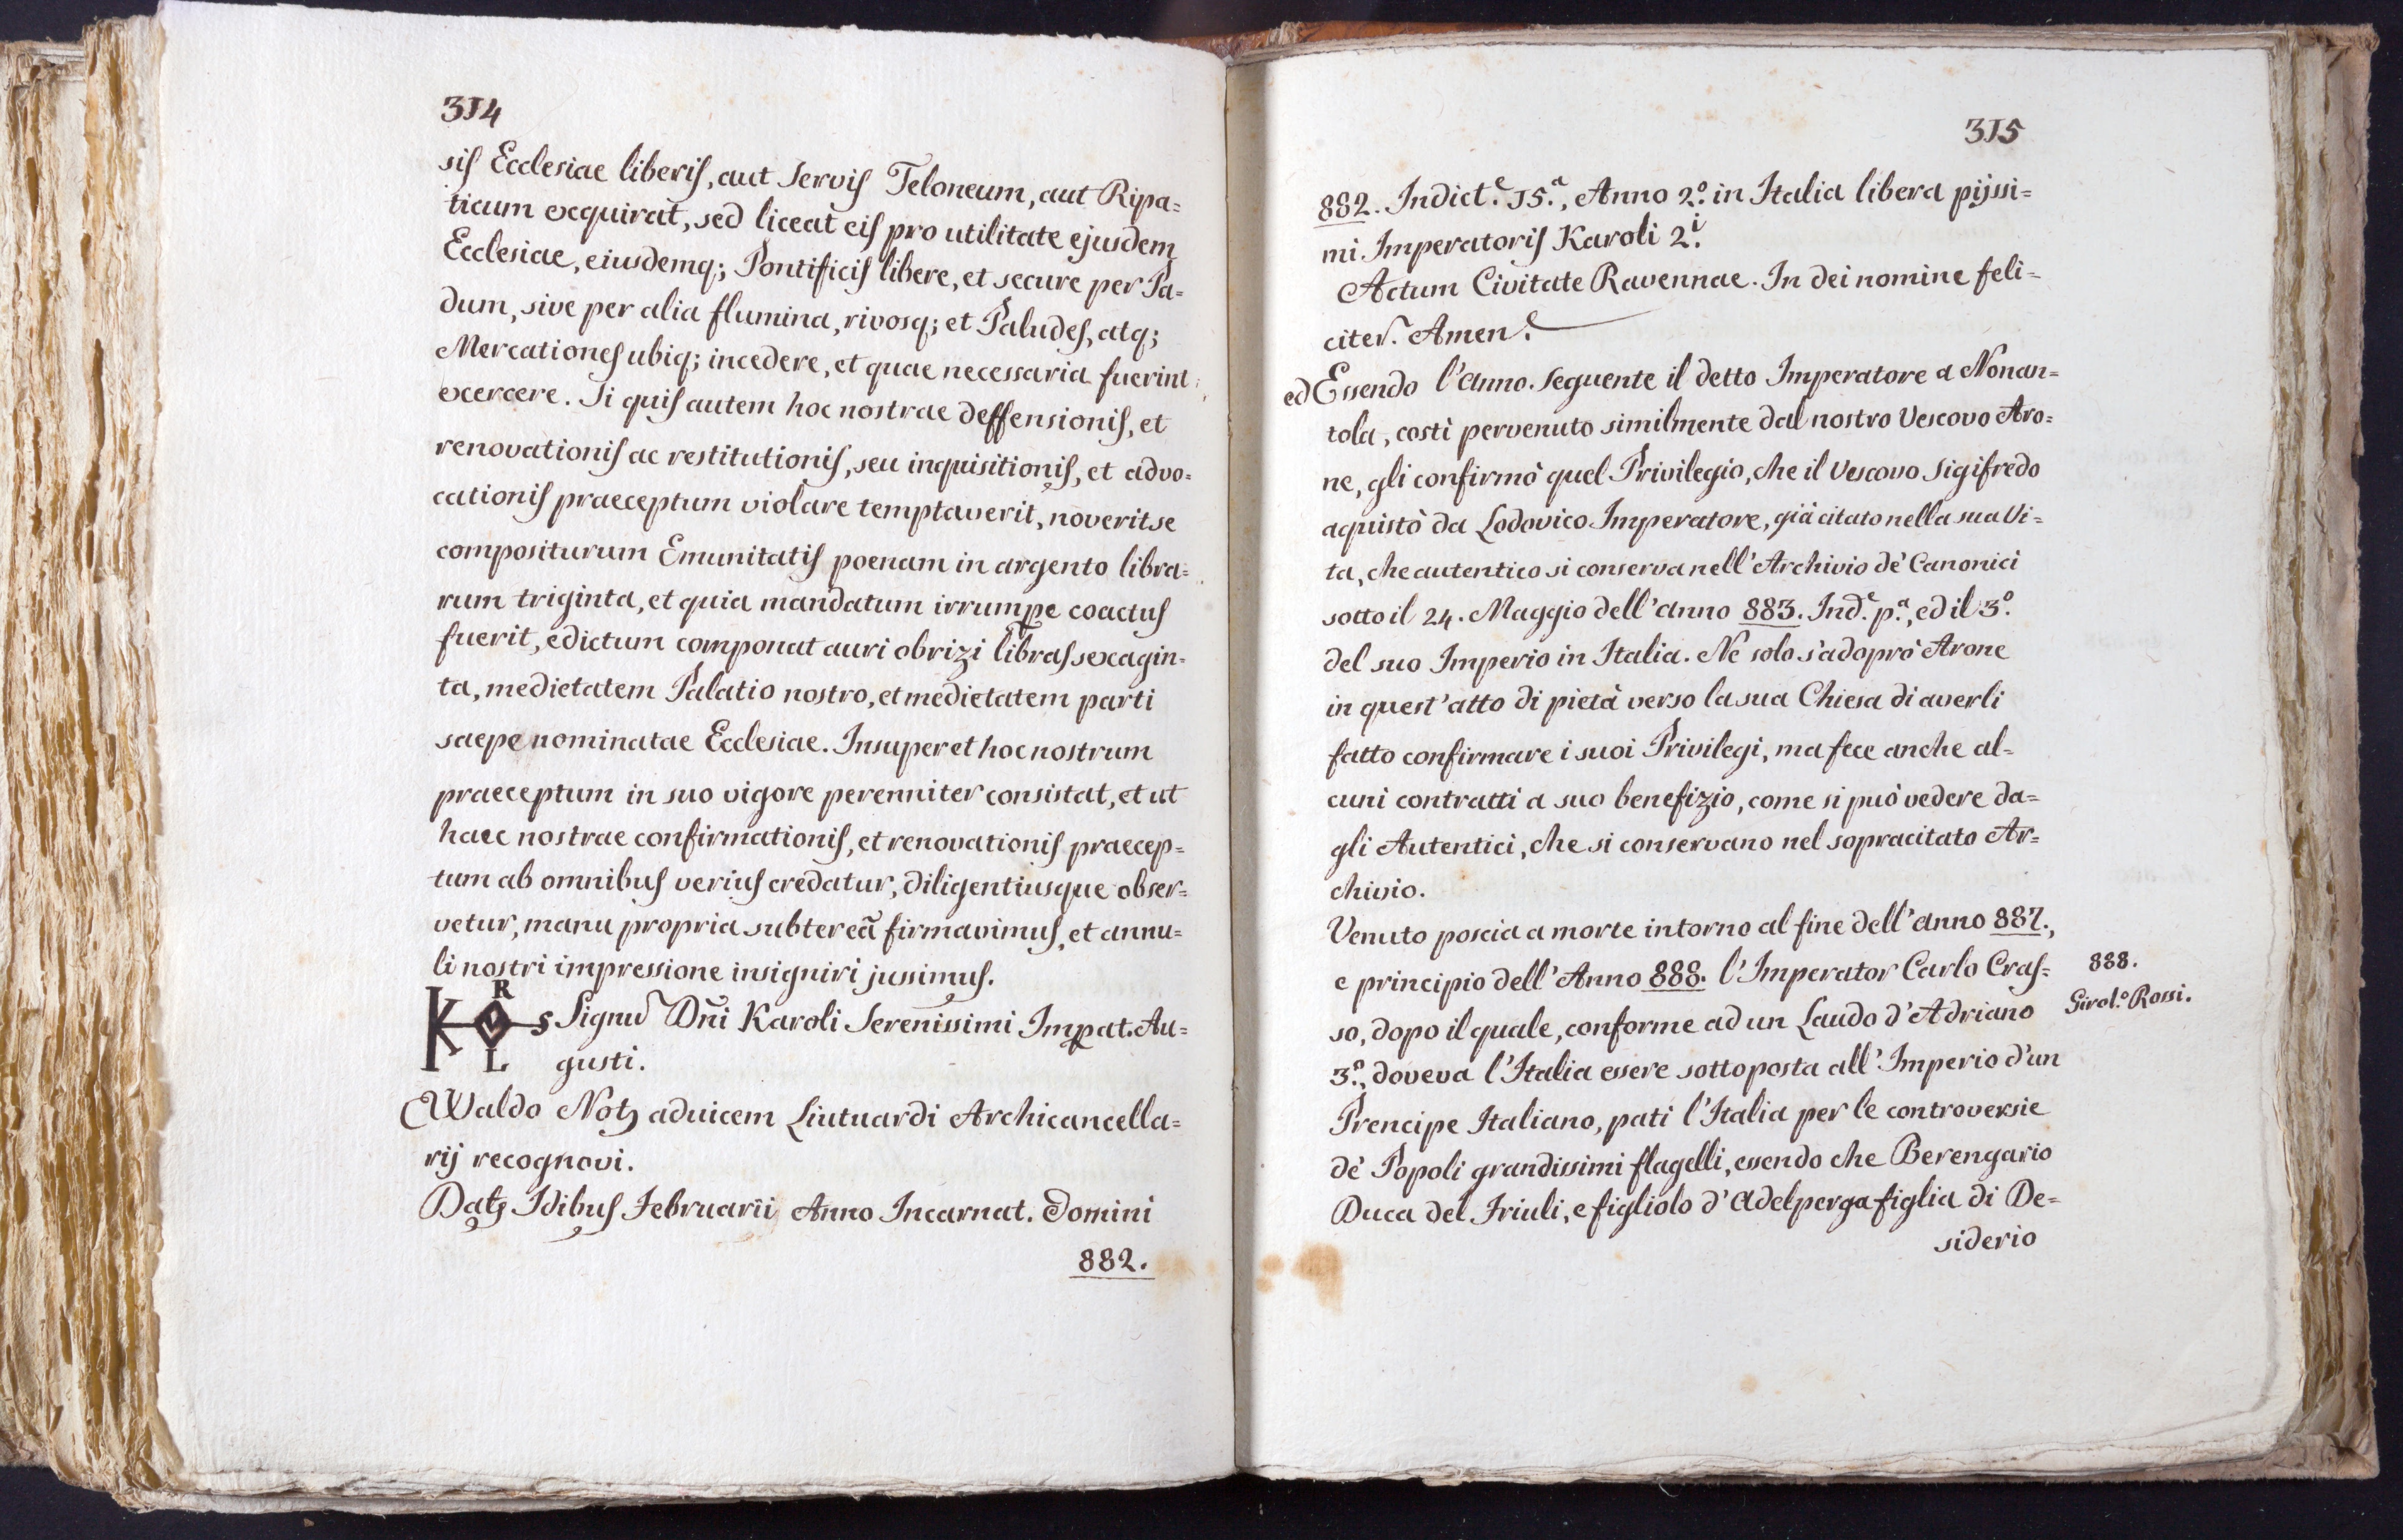 314
sis Ecclesiae liberis, aut Servis Teloneum, aut Ripa=
ticum exquirat, sed liceat eis pro utilitate ejusdem
Ecclesiae, eiusdemq; Pontificis libere, et secure per Pa=
dum, sive per alia flumina, rivosq; et Paludes, atq;
Mercationes ubiq; incedere, et quae necessaria fuerint
exercere. Si quis autem hoc nostrae deffensionis, et
renovationis ac restitutionis, seu inquisitionis, et advo=
cationis praeceptum violare temptaverit, noverit se
compositurum Emunitatis poenam in argento libra=
rum triginta, et quia mandatum irrumpe coactus
fuerit, edictum componat auri obrizi libras sexagin=
ta, medietatem Palatio nostro, et medietatem parti
saepe nominatae Ecclesiae. Insuper et hoc nostrum
praeceptum in suo vigore perenniter consistat, et ut
haec nostrae confirmationis, et renovationis praecep=
tum ab omnibus verius credatur, diligentiusque obser=
vetur, manu propria subter eã firmavimus, et annu=
li nostri impressione insigniri jussimus.
K R V L S Signũ Dñi Karoli Serenissimi Impat. Au=
gusti.
Waldo Notʒ aduicem Liutuardi Archicancella=
rij recognovi.
Datʒ Idibus Februarii Anno Incarnat. Domini
882.
315
882. Indict.e 15.a, Anno 2.o in Italia libera pijssi=
mi Imperatoris Karoli 2.i
Actum Civitate Ravennae. In dei nomine feli=
citer. Amen.
ed Essendo l'anno seguente il detto Imperatore a Nonan=
tola, costì pervenuto similmente dal nostro Vescovo Aro=
ne, gli confirmò quel Privilegio, che il Vescovo Sigifredo
aquistò da Lodovico Imperatore, già citato nella sua Vi=
ta, che autentico si conserva nell'Archivio de' Canonici
sotto il 24. Maggio dell'anno 883. Ind.e p.a, ed il 3.o
del suo Imperio in Italia. Ne solo s'adoprò Arone
in quest'atto di pietà verso la sua Chiesa di averli
fatto confirmare i suoi Privilegi, ma fece anche al=
cuni contratti a suo benefizio, come si può vedere da=
gli Autentici, che si conservano nel sopracitato Ar=
chivio.
Venuto poscia a morte intorno al fine dell'anno 887.,
e principio dell'Anno 888. l'Imperator Carlo Cras=
so, dopo il quale, conforme ad un Laudo d'Adriano
3.o, doveva l'Italia essere sottoposta all'Imperio d'un
Prencipe Italiano, patì l'Italia per le controversie
de' Popoli grandissimi flagelli, essendo che Berengario
Duca del Friuli, e figliolo d'Adelperga figlia di De=
siderio
888.
Girol.o Rossi.